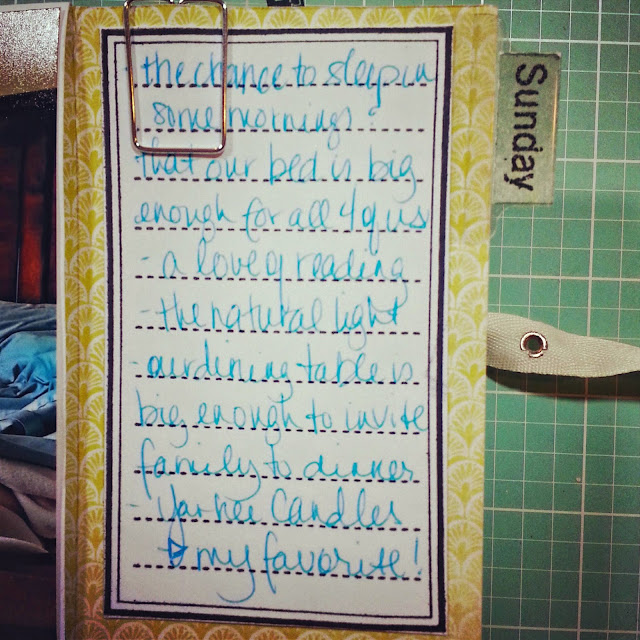 the chance to sleep in
some mornings &
that our bed is big
enough for all 4 of us
- a love of reading
- the natural light
- our dining table is
big enough to invite
family to dinner
- Yankee Candles
my favorite!
Sunday